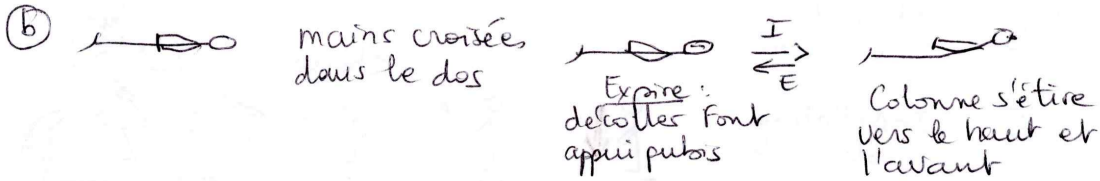 b
mains croisées
dans le dos
Expire :
décoller Font
appui pubis
I
E
Colonne s'étire
vers le haut et
l'avant